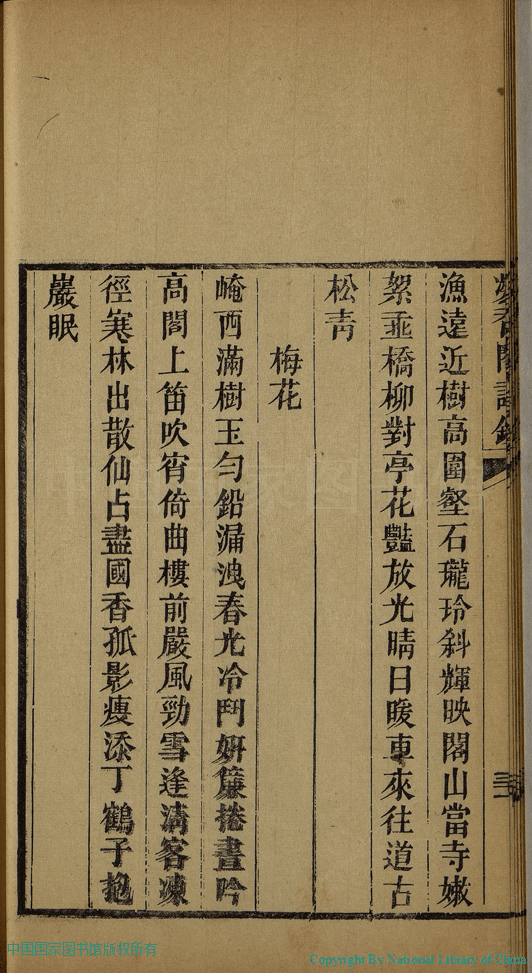 漁遠近樹高圍壑石瓏玲斜輝映閣山當寺嫩
絮垂橋柳對亭花豔放光晴日暖車來往道古
松青
梅花
崦西滿樹玉勻鉛漏洩春光冷鬥妍簾捲晝吟
高閣上笛吹宵倚曲樓前嚴風勁雪逢清客凍
徑寒林出散仙占盡國香孤影瘦添丁鶴子抱
巖眠
中国国家图书馆版权所有
Copyright By National Library of China